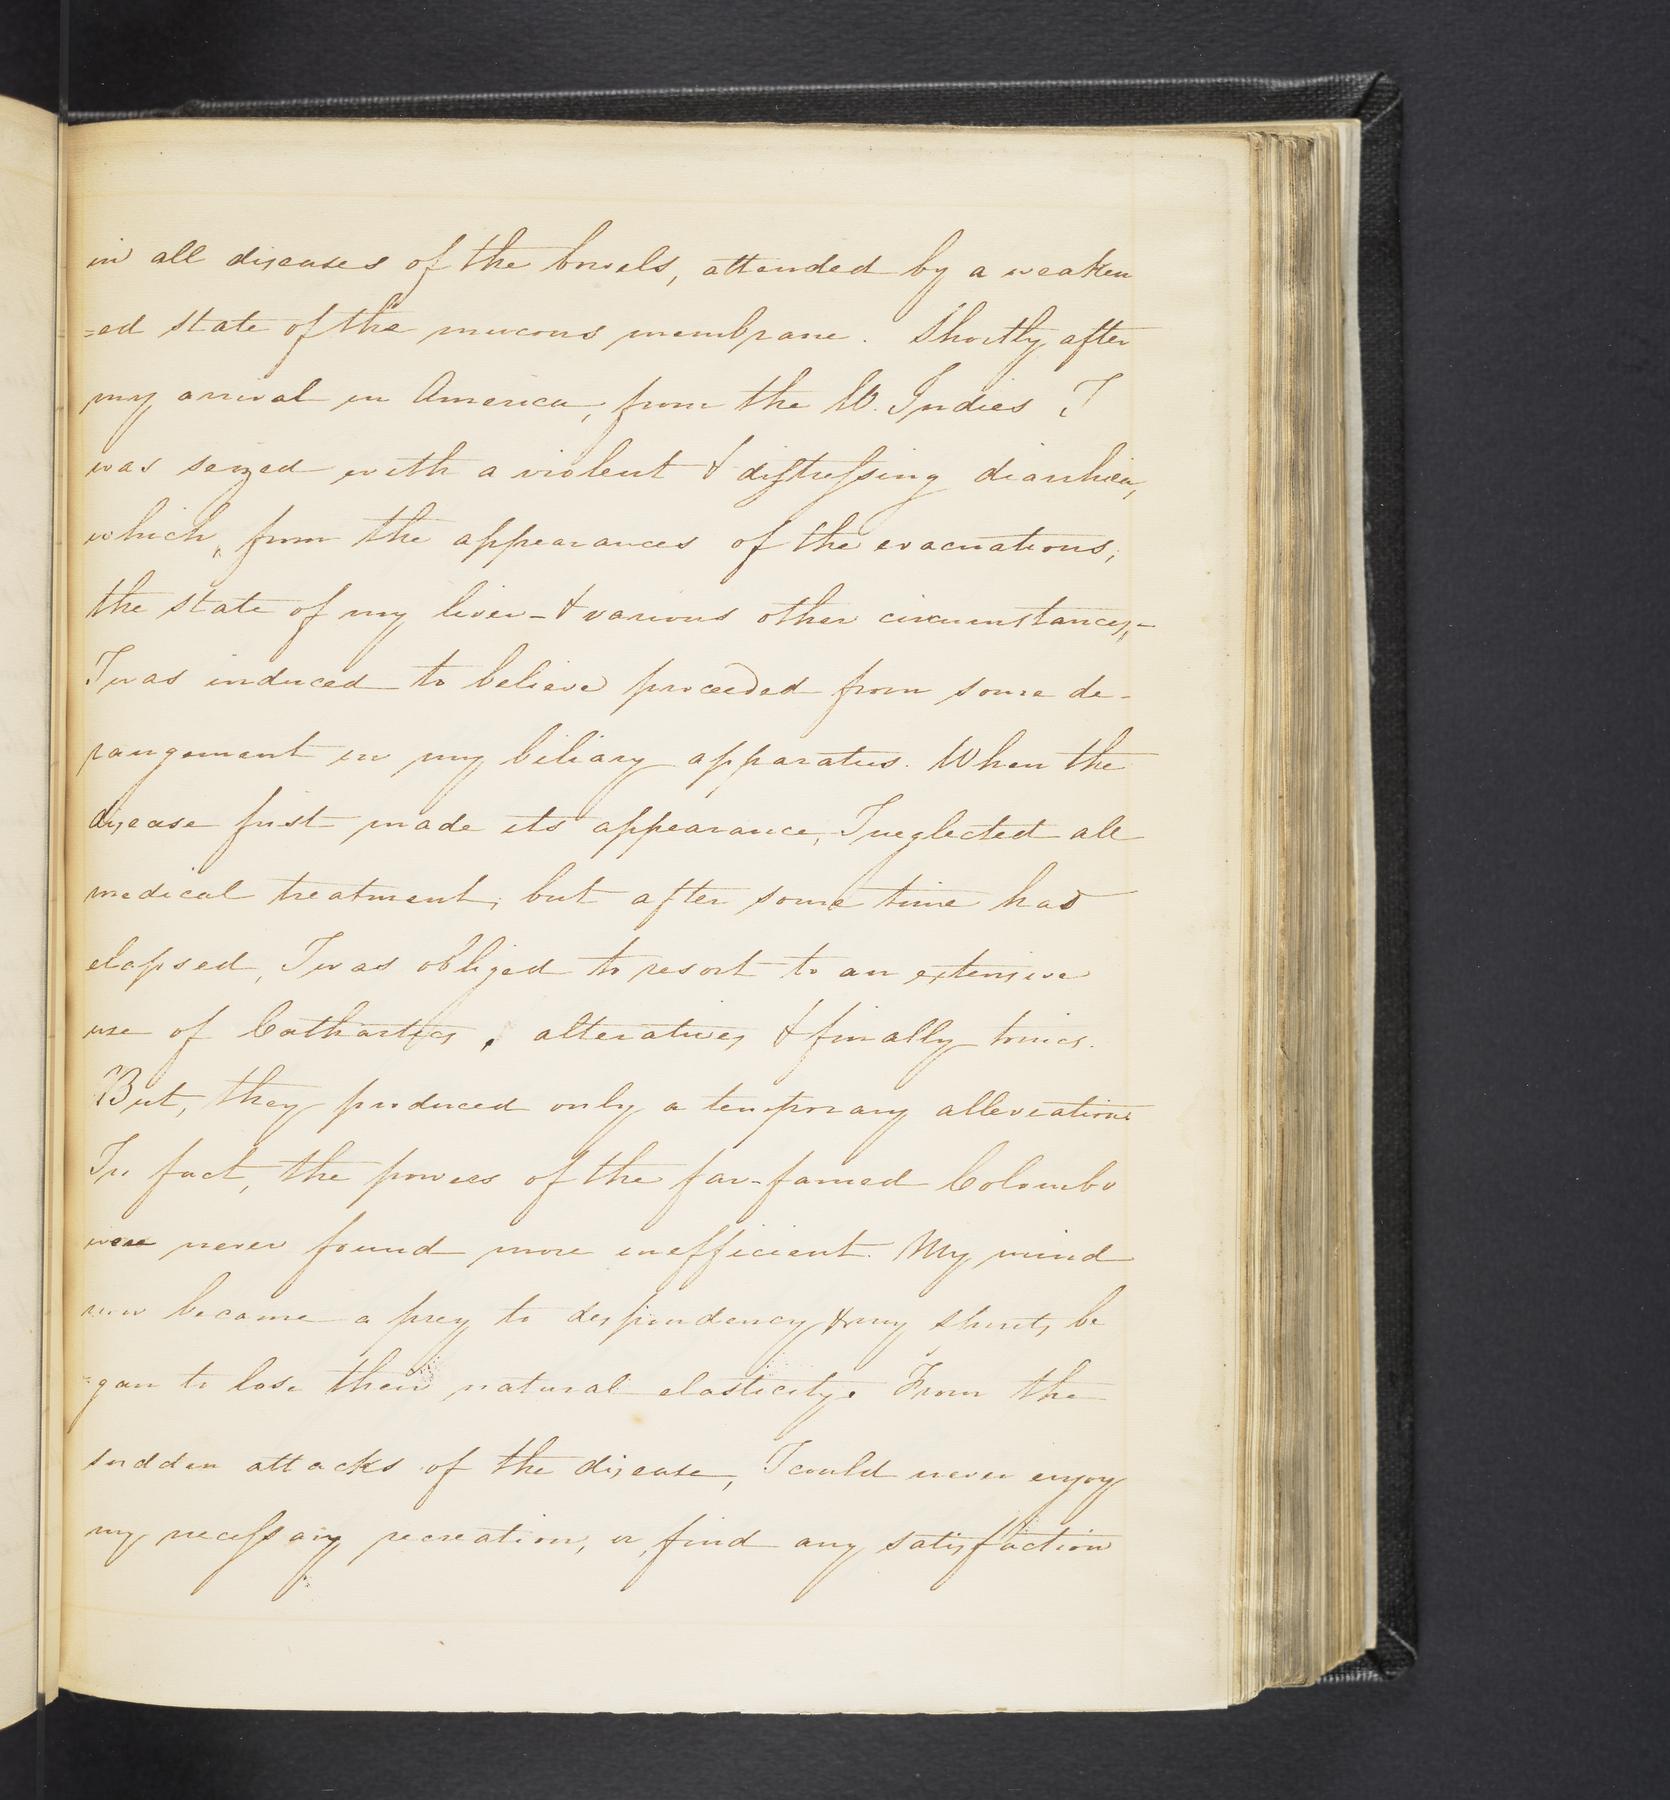 in all diseases of the bowels, attended by a weaken
=ed state of the mucous membrane. Shortly after
my arrival in America, from the W. Indies I
was seized with a violent & distressing diarrhœa,
which, from the appearances of the evacuations,
the state of my liver - & various other circumstances, -
I was induced to believe proceeded from some de-
rangement in my biliary apparatus. When the
disease first made its appearance, I neglected all
medical treatment, but after some time had
elapsed, I was obliged to resort to an extensive
use of Cathartics, alteratives & finally tonics.
But, they produced only a temporary alleviation
In fact, the powers of the far-famed Colombo
were never found more inefficient. My mind
now became a prey to despondency & my spirits be
=gan to lose their natural elasticity. From the
sudden attacks of the disease, I could never enjoy
my necessary recreation, or, find any satisfaction